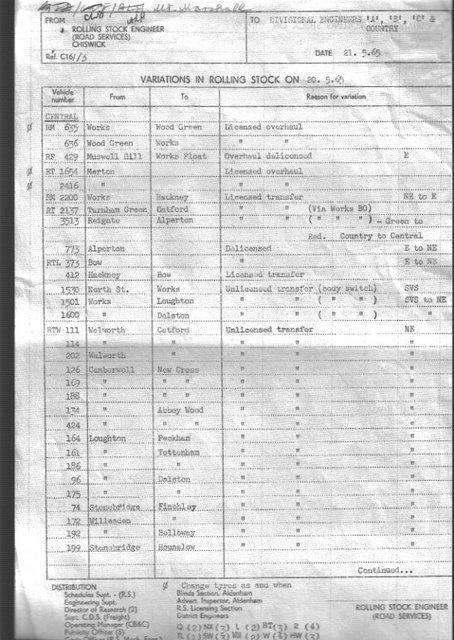 Mr. Marshall
FROM
ROLLING STOCK ENGINEER
(ROAD SERVICES)
CHISWICK
Ref. C16//3
TO DIVISIONAL ENGINEERS 'A', 'B', 'C' &
COUNTRY
DATE 21.5.65
VARIATIONS IN ROLLING STOCK ON 20.5.65
Vehicle number From To Reason for variation
CENTRAL
Ø RM 635 Works Wood Green Licensed overhaul
636 Wood Green Works " "
RF 429 Muswell Hill Works Float Overhaul delicensed E
Ø RT 1654 Merton Licensed overhaul
Ø 2416 " " "
RM 2200 Works Hackney Licensed transfer NE to E
RT 2137 Turnham Green Catford " " (Via Works BO)
3513 Reigate Alperton " " ( " " " ) - Green to
Red. Country to Central
773 Alperton Delicensed E to NE
RTL 373 Bow " E to NE
412 Hackney Bow Licensed transfer
1530 North St. Works Unlicensed transfer (body switch) SVS
1501 Works Loughton " " ( " " ) SVS to NE
1600 " Dalston " " ( " " ) "
RTW 111 Walworth Catford Unlicensed transfer NE
114 " " " " "
202 Walworth " " " "
126 Camberwell New Cross " " "
169 " " " " "
188 " " " " "
134 " Abbey Wood " " "
424 " " " " "
164 Loughton Peckham " " "
161 " Tottenham " " "
186 " " " " "
96 " Dalston " " "
175 " " " " "
74 Stonebridge Finchley " " "
172 Willesden " " " "
192 " Holloway " " "
199 Stonebridge Hounslow " " "
Continued...
DISTRIBUTION Ø Change tyres as and when
Schedules Supt. - (R.S.)
Engineering Supt.
Director of Research (2)
Supt. C.D.S. (Freight)
Operating Manager (CB&C)
Publicity Officer (5)
Blinds Section, Aldenham
Advert. Inspector, Aldenham
R.S. Licensing Section
District Engineers
ROLLING STOCK ENGINEER
(ROAD SERVICES)